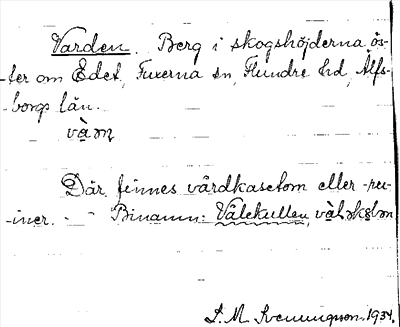 Varden. Berg i skogshöjderna ös-
ter om Edet, Fuxerna sn, Flundre hd, Älfs-
borgs län.
vàṇ
Där finnes vårdkasetom eller -ru-
iner. - Binamn: Vålekullen,
S. M. Svenungsson. 1934.